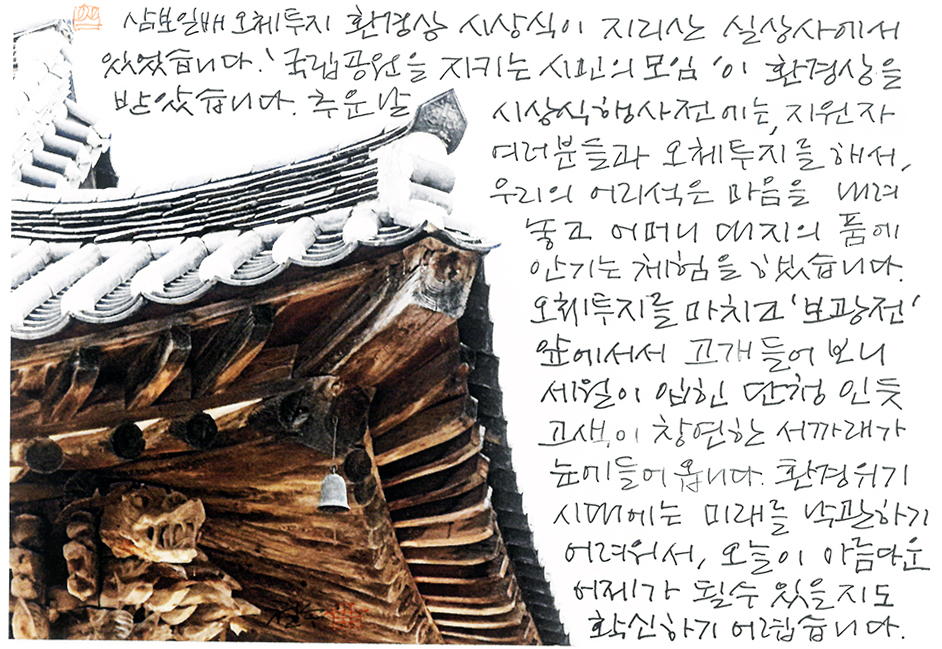 삼보일배 오체투지 환경상 시상식이 지리산 실상사에서
있었습니다. '국립공원을 지키는 시민의 모임'이 환경상을
받았습니다. 추운 날
시상식 행사전에는, 지원자
여러분들과 오체투지를 해서,
우리의 어리석은 마음을 내려
놓고 어머니 대지의 품에
안기는 체험을 해봤습니다.
오체투지를 마치고 '보광전'
앞에 서서 고개들어 보니
세월이 입힌 단청인듯
고색이 창연한 서까래가
눈에 들어 옵니다. 환경위기
시대에는 미래를 낙관하기
어려워서, 오늘이 아름다운
어제가 될수 있을지도
확신하기 어렵습니다.